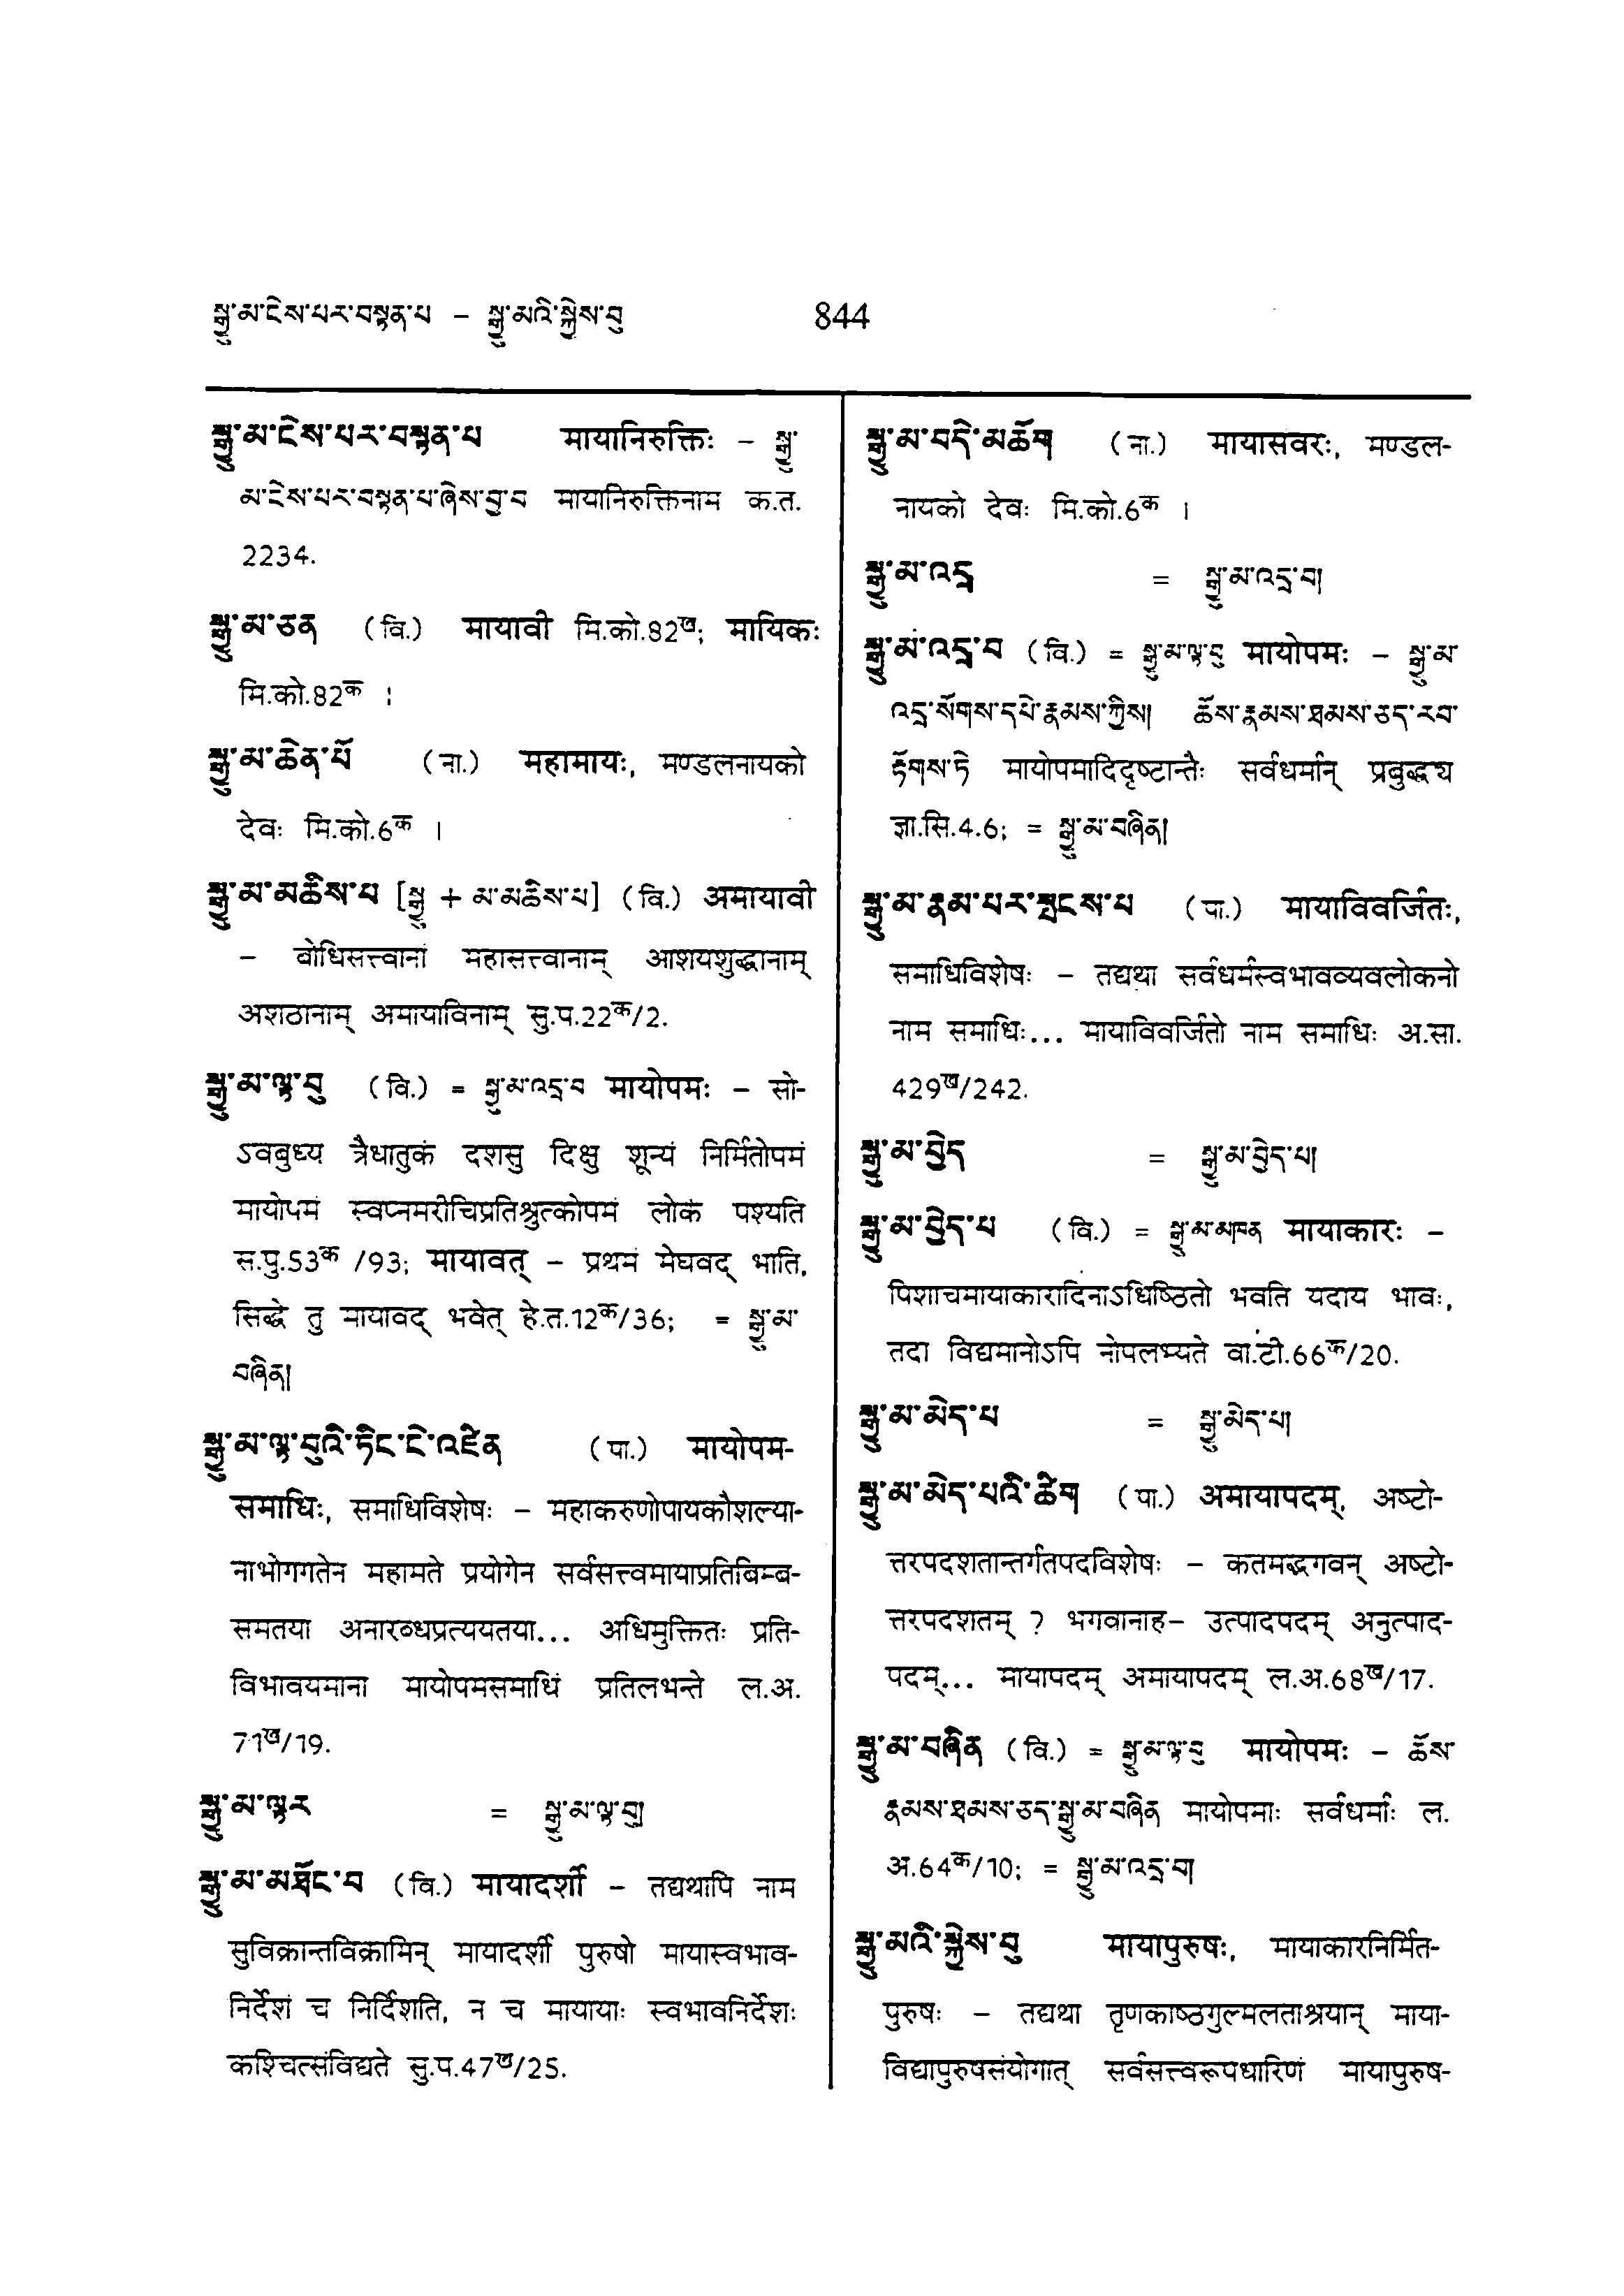 སྒྱུ་མ་ངེས་པར་བསྟན་པ – སྒྱུ་མའི་སྐྱེས་བུ
844
སྒྱུ་མ་ངེས་པར་བསྟན་པ मायानिरुक्तिः – སྒྱུ་
མ་ངེས་པར་བསྟན་པ་ཞེས་བྱ་བ मायानिरुक्तिनाम क.त.
2234.
སྒྱུ་མ་ཅན (वि.) मायावी मि.को.82ख; मायिकः
मि.को.82क ।
སྒྱུ་མ་ཆེན་པོ (ना.) महामायः, मण्डलनायको
देवः मि.को.6क ।
སྒྱུ་མ་མཆིས་པ [སྒྱུ + མ་མཆིས་པ] (वि.) अमायावी
– बोधिसत्त्वानां महासत्त्वानाम् आशयशुद्धानाम्
अशठानाम् अमायाविनाम् सु.प.22क/2.
སྒྱུ་མ་ལྟ་བུ (वि.) = སྒྱུ་མ་འདྲ་བ मायोपमः – सो-
ऽवबुध्य त्रैधातुकं दशसु दिक्षु शून्यं निर्मितोपमं
मायोपमं स्वप्नमरीचिप्रतिश्रुत्कोपमं लोकं पश्यति
स.पु.53क /93; मायावत् – प्रथमं मेघवद् भाति,
सिद्धे तु मायावद् भवेत् हे.त.12क/36; = སྒྱུ་མ་
བཞིན།
སྒྱུ་མ་ལྟ་བུའི་ཏིང་ངེ་འཛིན (पा.) मायोपम-
समाधिः, समाधिविशेषः – महाकरुणोपायकौशल्या-
नाभोगगतेन महामते प्रयोगेन सर्वसत्त्वमायाप्रतिबिम्ब-
समतया अनारब्धप्रत्ययतया... अधिमुक्तितः प्रति-
विभावयमाना मायोपमसमाधिं प्रतिलभन्ते ल.अ.
71ख/19.
སྒྱུ་མ་ལྟར = སྒྱུ་མ་ལྟ་བུ།
སྒྱུ་མ་མཐོང་བ (वि.) मायादर्शी – तद्यथापि नाम
सुविक्रान्तविक्रामिन् मायादर्शी पुरुषो मायास्वभाव-
निर्देशं च निर्दिशति, न च मायायाः स्वभावनिर्देशः
कश्चित्संविद्यते सु.प.47ख/25.
སྒྱུ་མ་བདེ་མཆོག (ना.) मायासंवरः, मण्डल-
नायको देवः मि.को.6क ।
སྒྱུ་མ་འདྲ = སྒྱུ་མ་འདྲ་བ།
སྒྱུ་མ་འདྲ་བ (वि.) = སྒྱུ་མ་ལྟ་བུ मायोपमः – སྒྱུ་མ་
འདྲ་སོགས་དཔེ་རྣམས་ཀྱིས། ཆོས་རྣམས་ཐམས་ཅད་རབ་
རྟོགས་ཏེ मायोपमादिदृष्टान्तैः सर्वधर्मान् प्रबुद्ध्य च
ज्ञा.सि.4.6; = སྒྱུ་མ་བཞིན།
སྒྱུ་མ་རྣམ་པར་སྤངས་པ (पा.) मायाविवर्जितः,
समाधिविशेषः – तद्यथा सर्वधर्मस्वभावव्यवलोकनो
नाम समाधिः... मायाविवर्जितो नाम समाधिः अ.सा.
429ख/242.
སྒྱུ་མ་བྱེད = སྒྱུ་མ་བྱེད་པ།
སྒྱུ་མ་བྱེད་པ (वि.) = སྒྱུ་མ་མཁན मायाकारः –
पिशाचमायाकारादिनाऽधिष्ठितो भवति यदाय भावः,
तदा विद्यमानोऽपि नोपलभ्यते वा.टी.66क/20.
སྒྱུ་མ་མེད་པ = སྒྱུ་མེད་པ།
སྒྱུ་མ་མེད་པའི་ཚིག (पा.) अमायापदम्, अष्टो-
त्तरपदशतान्तर्गतपदविशेषः – कतमद्भगवन् अष्टो-
त्तरपदशतम् ? भगवानाह– उत्पादपदम् अनुत्पाद-
पदम्... मायापदम् अमायापदम् ल.अ.68ख/17.
སྒྱུ་མ་བཞིན (वि.) = སྒྱུ་མ་ལྟ་བུ मायोपमः – ཆོས་
རྣམས་ཐམས་ཅད་སྒྱུ་མ་བཞིན मायोपमाः सर्वधर्माः ल.
अ.64क/10; = སྒྱུ་མ་འདྲ་བ།
སྒྱུ་མའི་སྐྱེས་བུ मायापुरुषः, मायाकारनिर्मित-
पुरुषः – तद्यथा तृणकाष्ठगुल्मलताश्रयान् माया-
विद्यापुरुषसंयोगात् सर्वसत्त्वरूपधारिणं मायापुरुष-